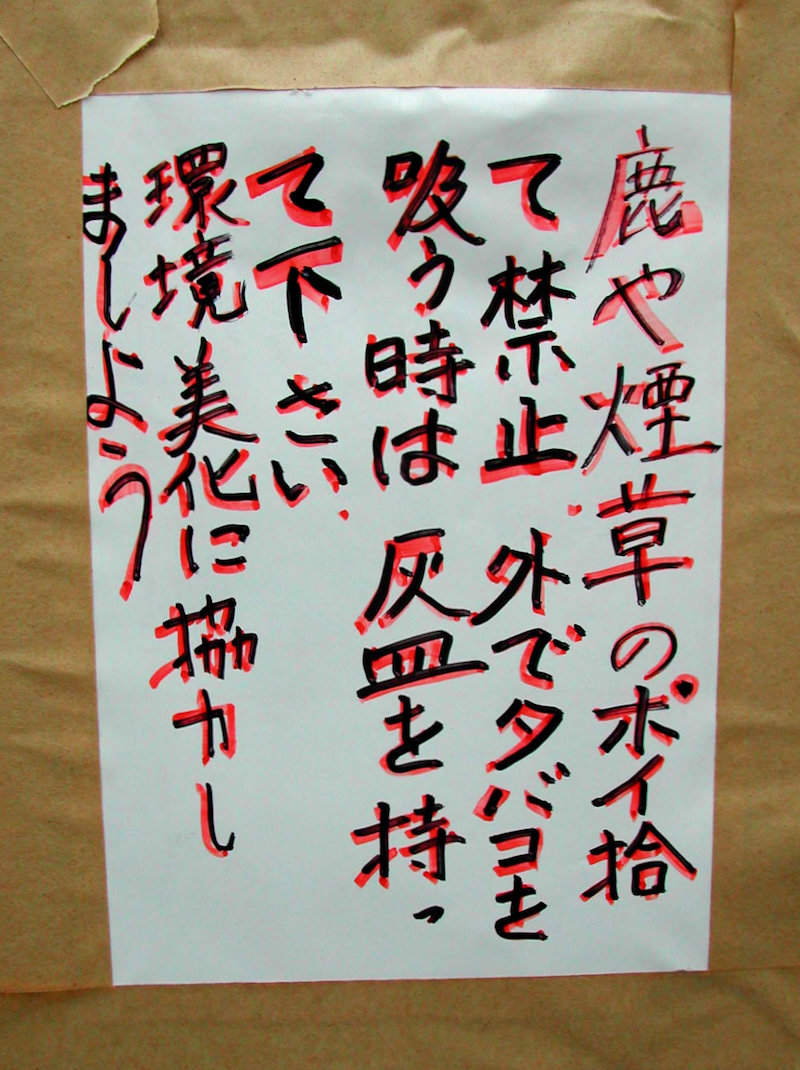 鹿や煙草のポイ拾
て禁止 外でタバコを
吸う時は 灰皿を持っ
て下さい
環境 美化に協力し
ましょう